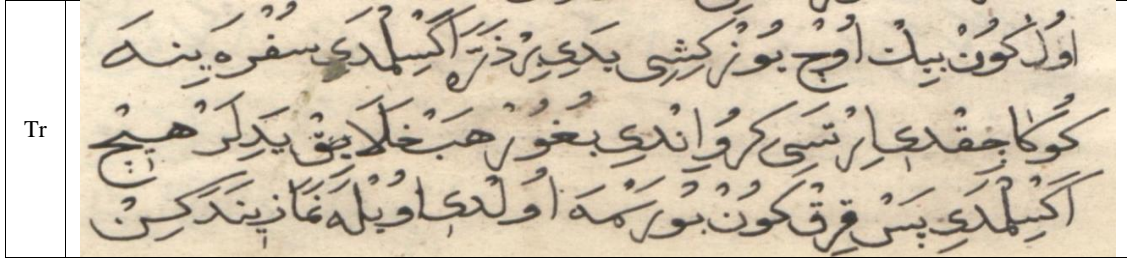 Tr
اُولْ كُونْ بِيكْ اُوچْ يُوزْ كِشِى يَدِى بِرْ ذَرَّ اَكْسِلْمَدِى سُفْرَه يِنَه
كُوكَا چِقْدِى اِرْتَسِى كَرُو اِنْدِى بُغُورْ هَبْ خَلَايِقْ يَدِلَرْ هِيچْ
اَكْسِلْمَدِى پَسْ قِرِقْ كُونْ بُورَسْمَه اُولْدِى اُويْلَه نَمَازِينَدَ كَسِنْ